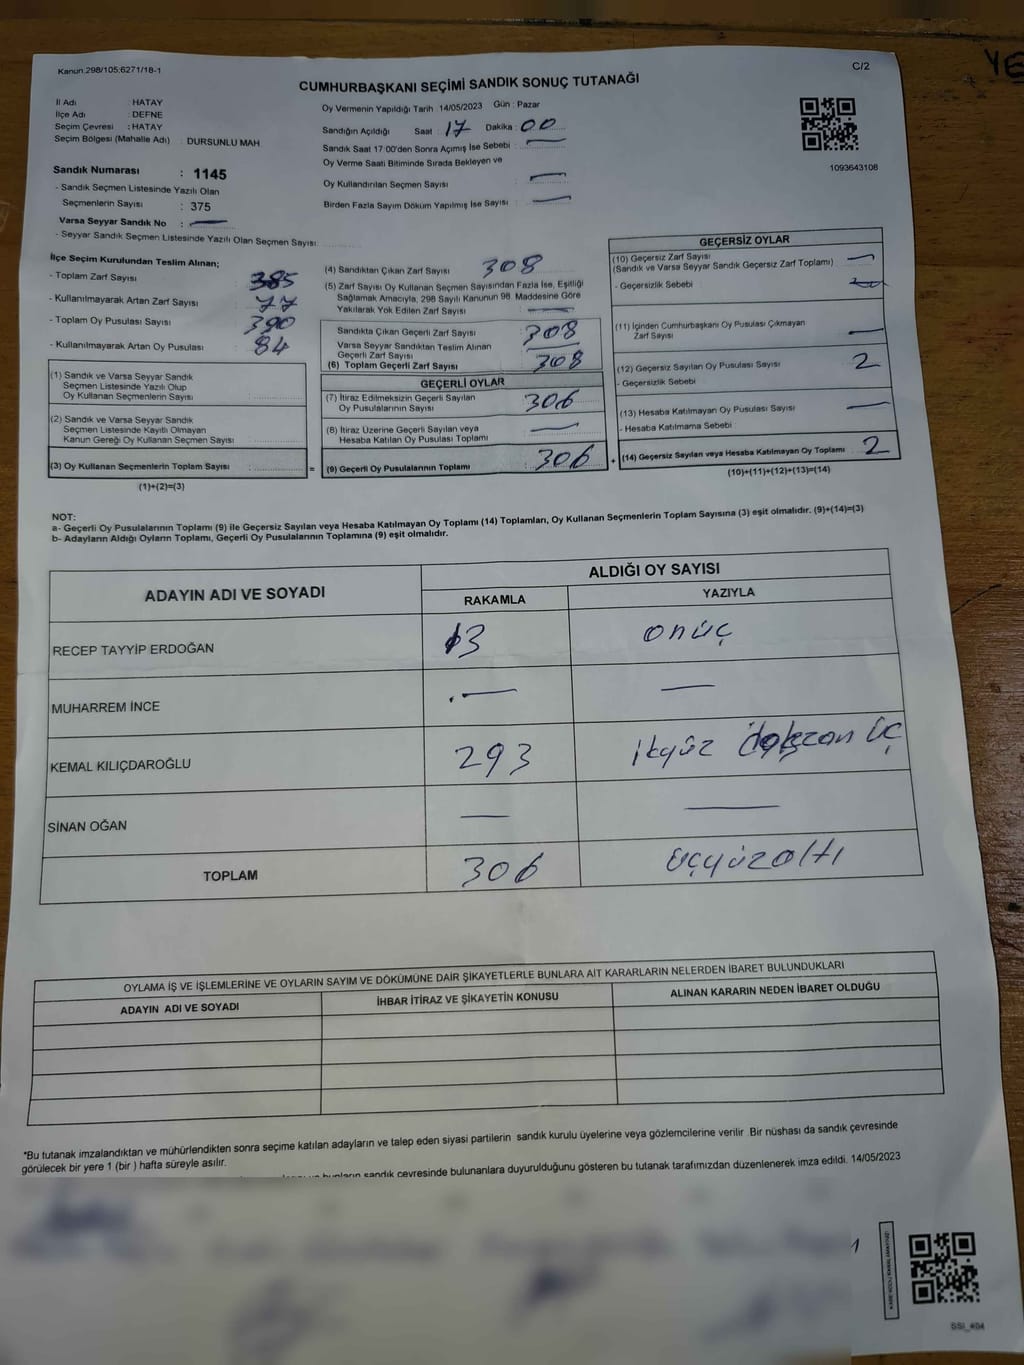 Kanun.298/105:6271/18-1
C/2
CUMHURBAŞKANI SEÇİMİ SANDIK SONUÇ TUTANAĞI
İl Adı : HATAY
İlçe Adı : DEFNE
Seçim Çevresi : HATAY
Seçim Bölgesi (Mahalle Adı) : DURSUNLU MAH.
Sandık Numarası : 1145
- Sandık Seçmen Listesinde Yazılı Olan
Seçmenlerin Sayısı : 375
Varsa Seyyar Sandık No : —
- Seyyar Sandık Seçmen Listesinde Yazılı Olan Seçmen Sayısı:
Oy Vermenin Yapıldığı Tarih : 14/05/2023 Gün : Pazar
Sandığın Açıldığı Saat : 17 Dakika : 00
Sandık Saat 17:00'den Sonra Açmış İse Sebebi : —
Oy Verme Saati Bitiminde Sırada Bekleyen ve
Oy Kullandırılan Seçmen Sayısı : —
Birden Fazla Sayım Döküm Yapılmış İse Sayısı : —
1093643108
İlçe Seçim Kurulundan Teslim Alınan;
- Toplam Zarf Sayısı : 385
- Kullanılmayarak Artan Zarf Sayısı : 77
- Toplam Oy Pusulası Sayısı : 390
- Kullanılmayarak Artan Oy Pusulası : 84
(1) Sandık ve Varsa Seyyar Sandık
Seçmen Listesinde Yazılı Olup
Oy Kullanan Seçmenlerin Sayısı :
(2) Sandık ve Varsa Seyyar Sandık
Seçmen Listesinde Kayıtlı Olmayan
Kanun Gereği Oy Kullanan Seçmen Sayısı :
(3) Oy Kullanan Seçmenlerin Toplam Sayısı : =
(1)+(2)=(3)
(4) Sandıktan Çıkan Zarf Sayısı : 308
(5) Zarf Sayısı Oy Kullanan Seçmen Sayısından Fazla İse, Eşitliği
Sağlamak Amacıyla, 298 Sayılı Kanunun 98. Maddesine Göre
Yakılarak Yok Edilen Zarf Sayısı : —
Sandıkta Çıkan Geçerli Zarf Sayısı : 308
Varsa Seyyar Sandıktan Teslim Alınan
Geçerli Zarf Sayısı
(6) Toplam Geçerli Zarf Sayısı : 308
GEÇERLİ OYLAR
(7) İtiraz Edilmeksizin Geçerli Sayılan
Oy Pusulalarının Sayısı : 306
(8) İtiraz Üzerine Geçerli Sayılan veya
Hesaba Katılan Oy Pusulası Toplamı : —
(9) Geçerli Oy Pusulalarının Toplamı : 306 +
GEÇERSİZ OYLAR
(10) Geçersiz Zarf Sayısı : —
(Sandık ve Varsa Seyyar Sandık Geçersiz Zarf Toplamı)
- Geçersizlik Sebebi :
(11) İçinden Cumhurbaşkanı Oy Pusulası Çıkmayan
Zarf Sayısı : —
(12) Geçersiz Sayılan Oy Pusulası Sayısı : 2
- Geçersizlik Sebebi :
(13) Hesaba Katılmayan Oy Pusulası Sayısı : —
- Hesaba Katılmama Sebebi :
(14) Geçersiz Sayılan veya Hesaba Katılmayan Oy Toplamı : 2
(10)+(11)+(12)+(13)=(14)
NOT:
a- Geçerli Oy Pusulalarının Toplamı (9) ile Geçersiz Sayılan veya Hesaba Katılmayan Oy Toplamı (14) Toplamları, Oy Kullanan Seçmenlerin Toplam Sayısına (3) eşit olmalıdır. (9)+(14)=(3)
b- Adayların Aldığı Oyların Toplamı, Geçerli Oy Pusulalarının Toplamına (9) eşit olmalıdır.
ADAYIN ADI VE SOYADI
ALDIĞI OY SAYISI
RAKAMLA YAZIYLA
RECEP TAYYİP ERDOĞAN 13 onüç
MUHARREM İNCE — —
KEMAL KILIÇDAROĞLU 293 ikyüz dokzan üç
SİNAN OĞAN — —
TOPLAM 306 üçyüzaltı
OYLAMA İŞ VE İŞLEMLERİNE VE OYLARIN SAYIM VE DÖKÜMÜNE DAİR ŞİKAYETLERLE BUNLARA AİT KARARLARIN NELERDEN İBARET BULUNDUKLARI
ADAYIN ADI VE SOYADI İHBAR İTİRAZ VE ŞİKAYETİN KONUSU ALINAN KARARIN NEDEN İBARET OLDUĞU
*Bu tutanak imzalandıktan ve mühürlendikten sonra seçime katılan adayların ve talep eden siyasi partilerin sandık kurulu üyelerine veya gözlemcilerine verilir Bir nüshası da sandık çevresinde
görülecek bir yere 1 (bir ) hafta süreyle asılır.
bunların sandık çevresinde bulunanlara duyurulduğunu gösteren bu tutanak tarafımızdan düzenlenerek imza edildi. 14/05/2023
SSI_404